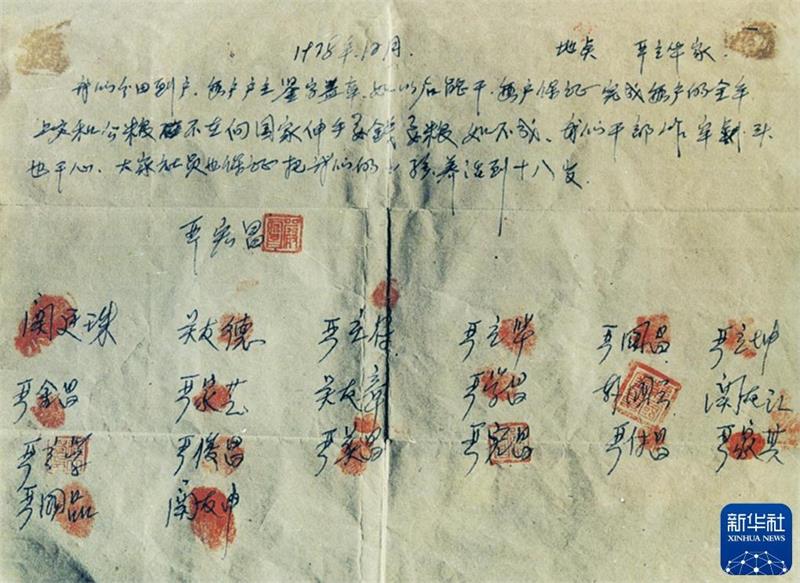 1978年12月. 地点 严立华家
我们分田到户,每户户主签字盖章,如以后能干,每户保证完成每户的全年
上交和公粮不在向国家伸手要钱要粮如不成,我们干部作牢剎头
也干心,大家社员也保证把我们的小孩养活到十八岁.
严宏昌
関廷珠 关友德 严立符 严立华 严国昌 严立坤
严金昌 严家芝 关友章 严学昌 韩国云 関友江
严立学 严俊昌 严美昌 严宏昌 严付昌 严家其
严国品 関友申
新华社
XINHUA NEWS